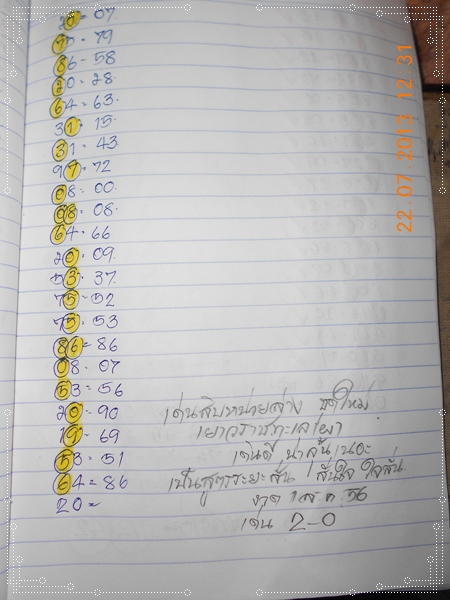 20 = 07
75 - 79
86 - 58
20 = 28
64 = 63
31 - 15
31 - 43
97 - 72
08 = 00
08 - 08
64 - 66
20 - 09
53 - 37
75 - 52
75 - 53
86 = 86
08 - 07
53 = 56
20 = 90
19 - 69
53 = 51
64 = 86
20 =
เด่นสิบหน่วยล่าง ชุดใหม่
เยาวราชทะเลผา
เดินดี น่าลุ้นเนอะ
เป็นสูตรระยะสั้น สั้นใจ ใจสั่น
งวด 1 ส.ค. 56
เด่น 2-0
22.07 2013 12 31